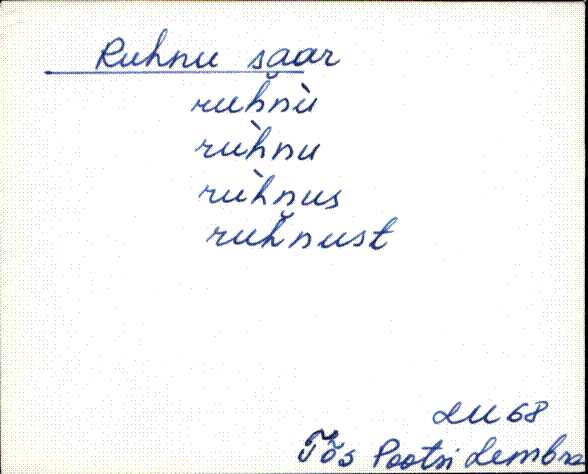 Ruhnu saar
ruhnu
ruhnu
ruhnus
ruhnust
LU 68
Tõs Pootsi Lembra